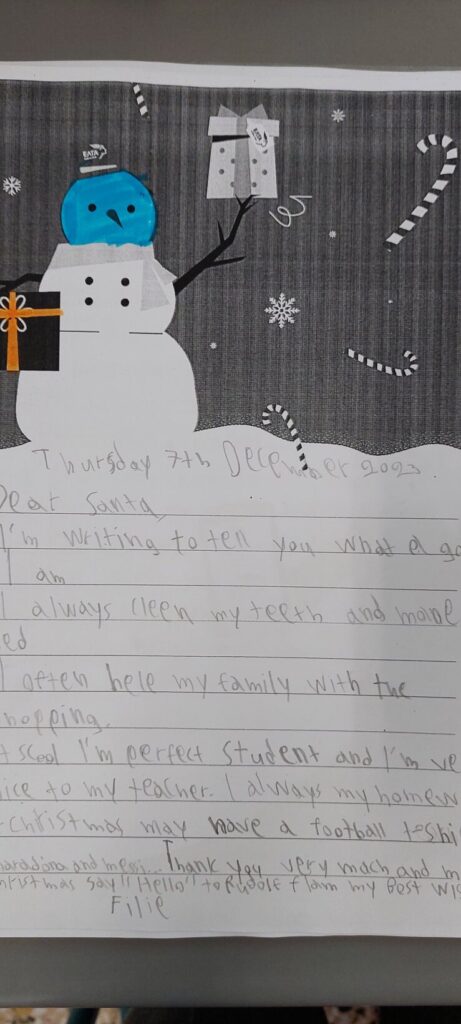 EATA
Thursday 7th December 2023
Dear Santa,
I'm writing to tell you what a go
I am
I always cleen my teeth and
ed
I often help my family with the
hopping.
t scool I'm perfect student and I'm ve
ice to my teacher. I always my homew
christmas may have a football
maradona and messi... Thank you very mach and m
christmas say "Hello" to Rudolf my Best wis
Filip